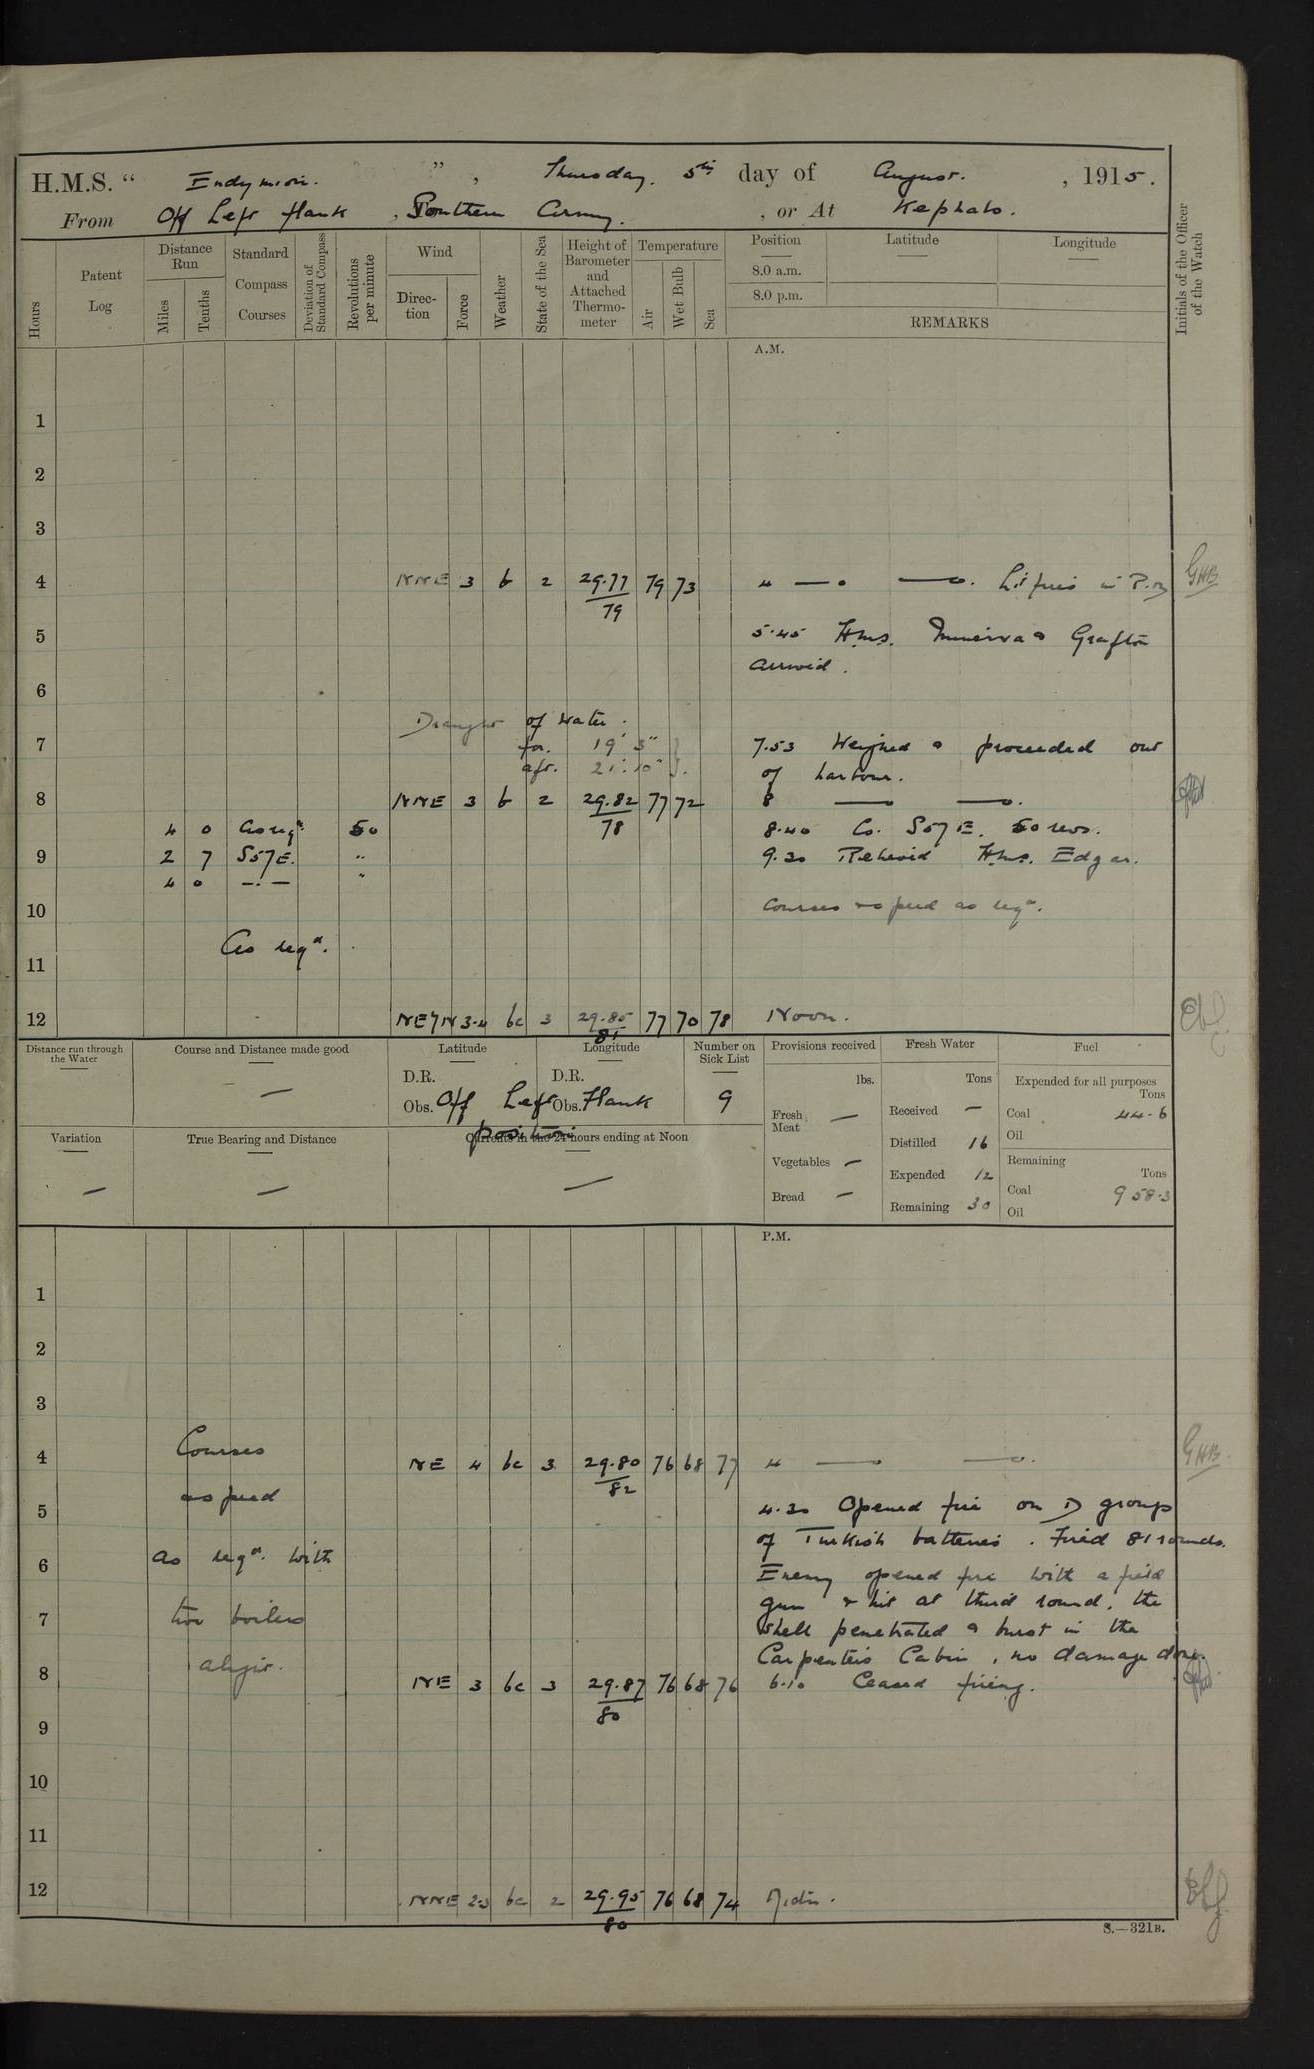 H.M.S. “ Endymion. ” , Thursday. 5th day of August. , 1915.
From Off Left flank , Southern Army. , or At Kephalo.
Hours
Patent Log
Distance Run
Miles
Tenths
Standard Compass Courses
Deviation of Standard Compass
Revolutions per minute
Wind
Direction
Force
Weather
State of the Sea
Height of Barometer and Attached Thermometer
Temperature
Air
Wet Bulb
Sea
Position
Latitude
Longitude
8.0 a.m.
8.0 p.m.
REMARKS
Initials of the Officer of the Watch
A.M.
1
2
3
4 NNE 3 b 2 29.77 79 73 4 — . —. Lit fires in GHB
79
5 5.45 H.M.S. Minerva & Grafton
arrived.
6
Draught of water.
7 for. 19' 3" 7.53 Weighed & proceeded out
aft. 21' 10" of harbour.
8 NNE 3 b 2 29.82 77 72 8 — —.
78
4 0 As reqd. 50 8.40 Co. S57E. 50 revs.
9 2 7 S57E. " 9.20 Relieved H.M.S. Edgar.
4 0 —.— "
10 Courses & speed as reqd.
As reqd.
11
12 NE/N 3.4 bc 3 29.85 77 70 78 Noon.
81
Distance run through the Water
Course and Distance made good
Latitude
Longitude
Number on Sick List
Provisions received
Fresh Water
Fuel
D.R. D.R.
lbs.
Tons
Expended for all purposes
Tons
Obs. Off Left Obs. Flank 9
position
Fresh Meat —
Received —
Coal 44.6
Oil
Distilled 16
Variation
True Bearing and Distance
Currents in the 24 hours ending at Noon
Vegetables —
Expended 12
Remaining
Tons
Bread —
Remaining 30
Coal 958.3
Oil
P.M.
1
2
3
Courses
4 NE 4 bc 3 29.80 76 68 77 4 — —. GHB
82
& speed
5 4.30 Opened fire on D group
of Turkish batteries. Fired 81 rounds.
as reqd. with
6 Enemy opened fire with a field
gun & hit at third round, the
7 two boilers shell penetrated & burst in the
Carpenters Cabin, no damage done.
alight.
8 NE 3 bc 3 29.87 76 68 76 6.10 Ceased firing.
80
9
10
11
12 NNE 2.3 bc 2 29.95 76 68 74 Midn.
80
S.—321B.